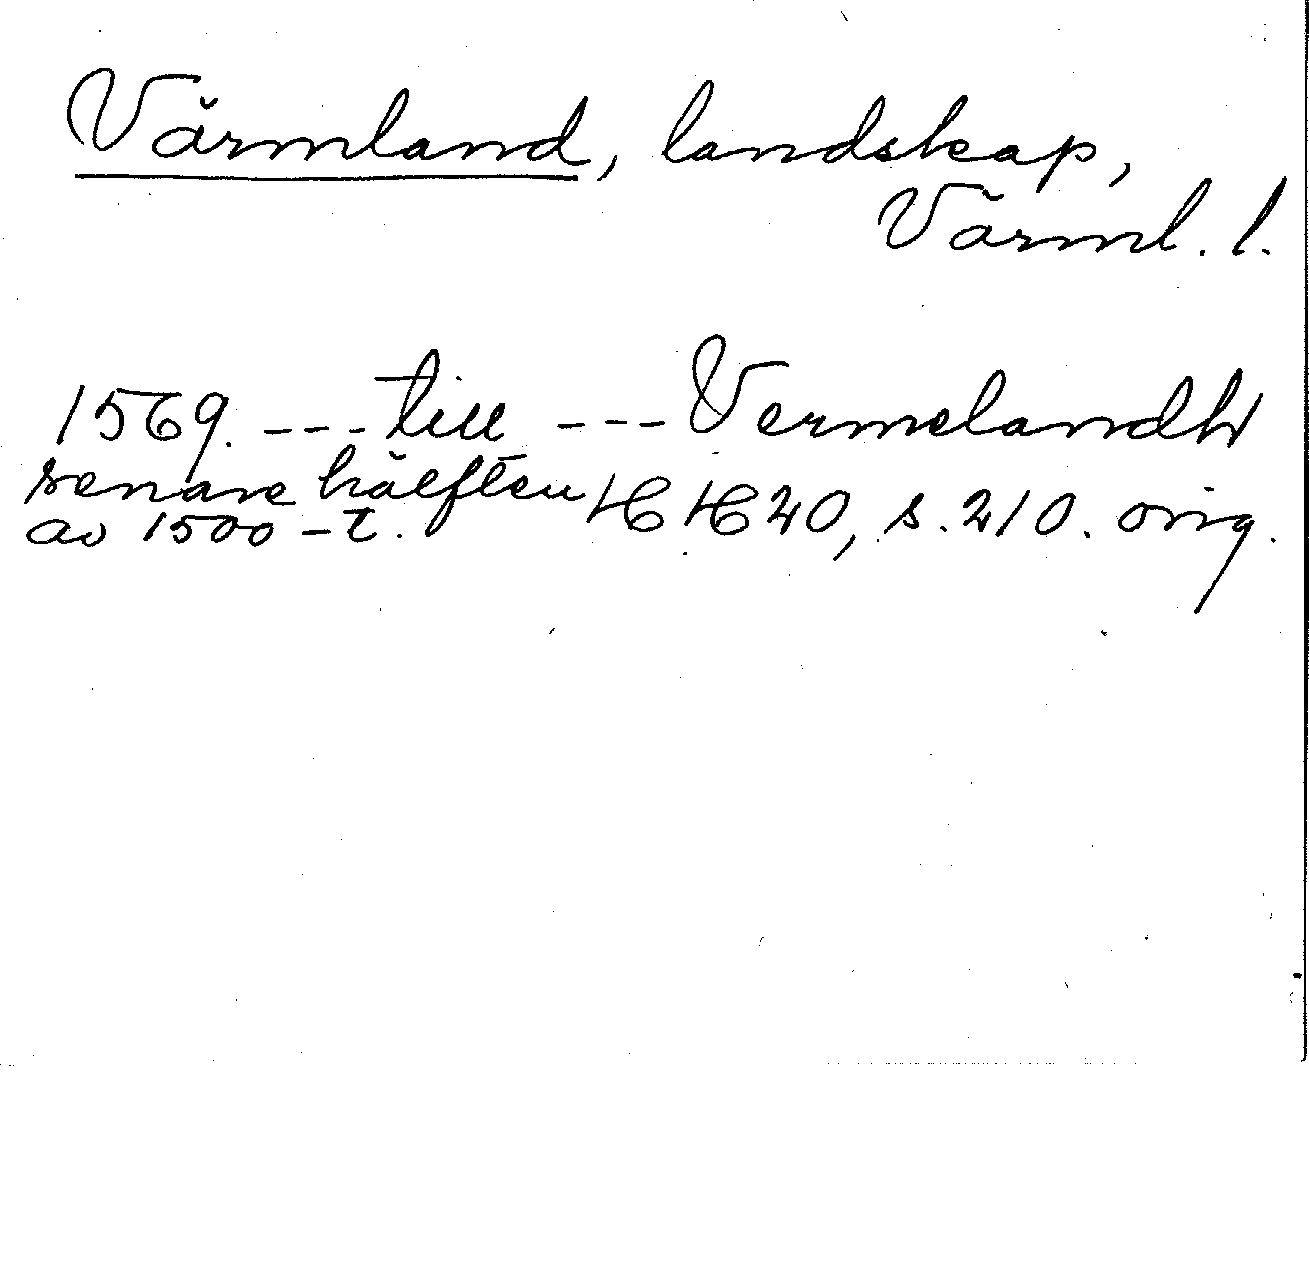 Värmland, landskap,
Värml. l.
1569. --- till --- Vermelandh
senare hälften HH 20, s. 210. orig.
av 1500-t.